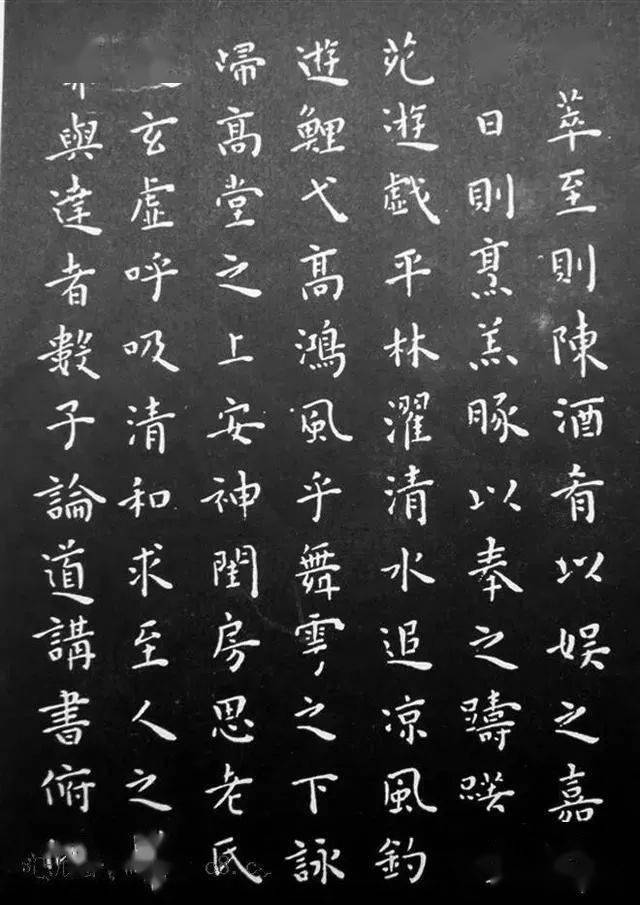 萃至則陳酒肴以娛之嘉
日則烹羔豚以奉之躊
苑遊戯平林濯清水追凉風釣
遊鯉弋高鴻風乎舞雩之下詠
歸高堂之上安神閨房思老氏
玄虛呼吸清和求至人之
與達者數子論道講書俯